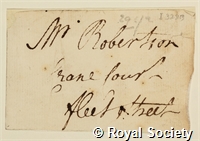 Mr Robertson
Crane Court
fleet street
© Royal Society